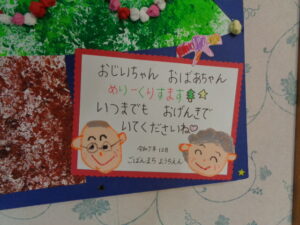 おじいちゃん おばあちゃん
めりーくりすます
いつまでも おげんきで
いてくださいね♡
令和7年 12月
ごばんまち ようちえん